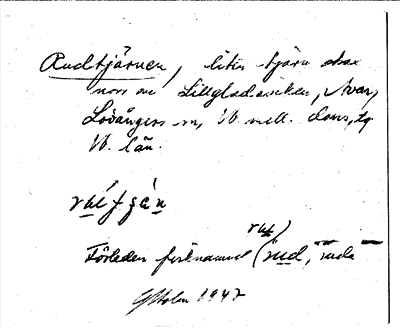 Rudtjärnen, liten tjärn strax
norr om Lillgladviken, Avan,
Lövångers sn, Vb. mell. doms, tg
Vb. län.
Förleden fisknamnet (rud, ruda
GHolm 1947